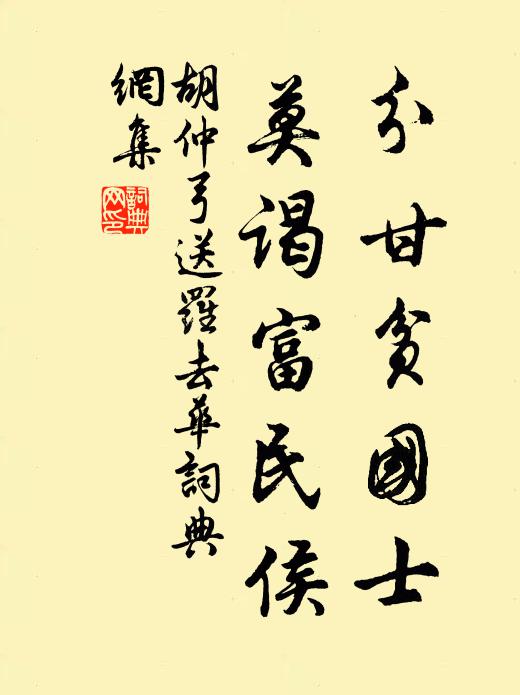 分甘貧國士
莫謁富民侯
胡仲弓送羅去華詞典
網集
詞典
网印